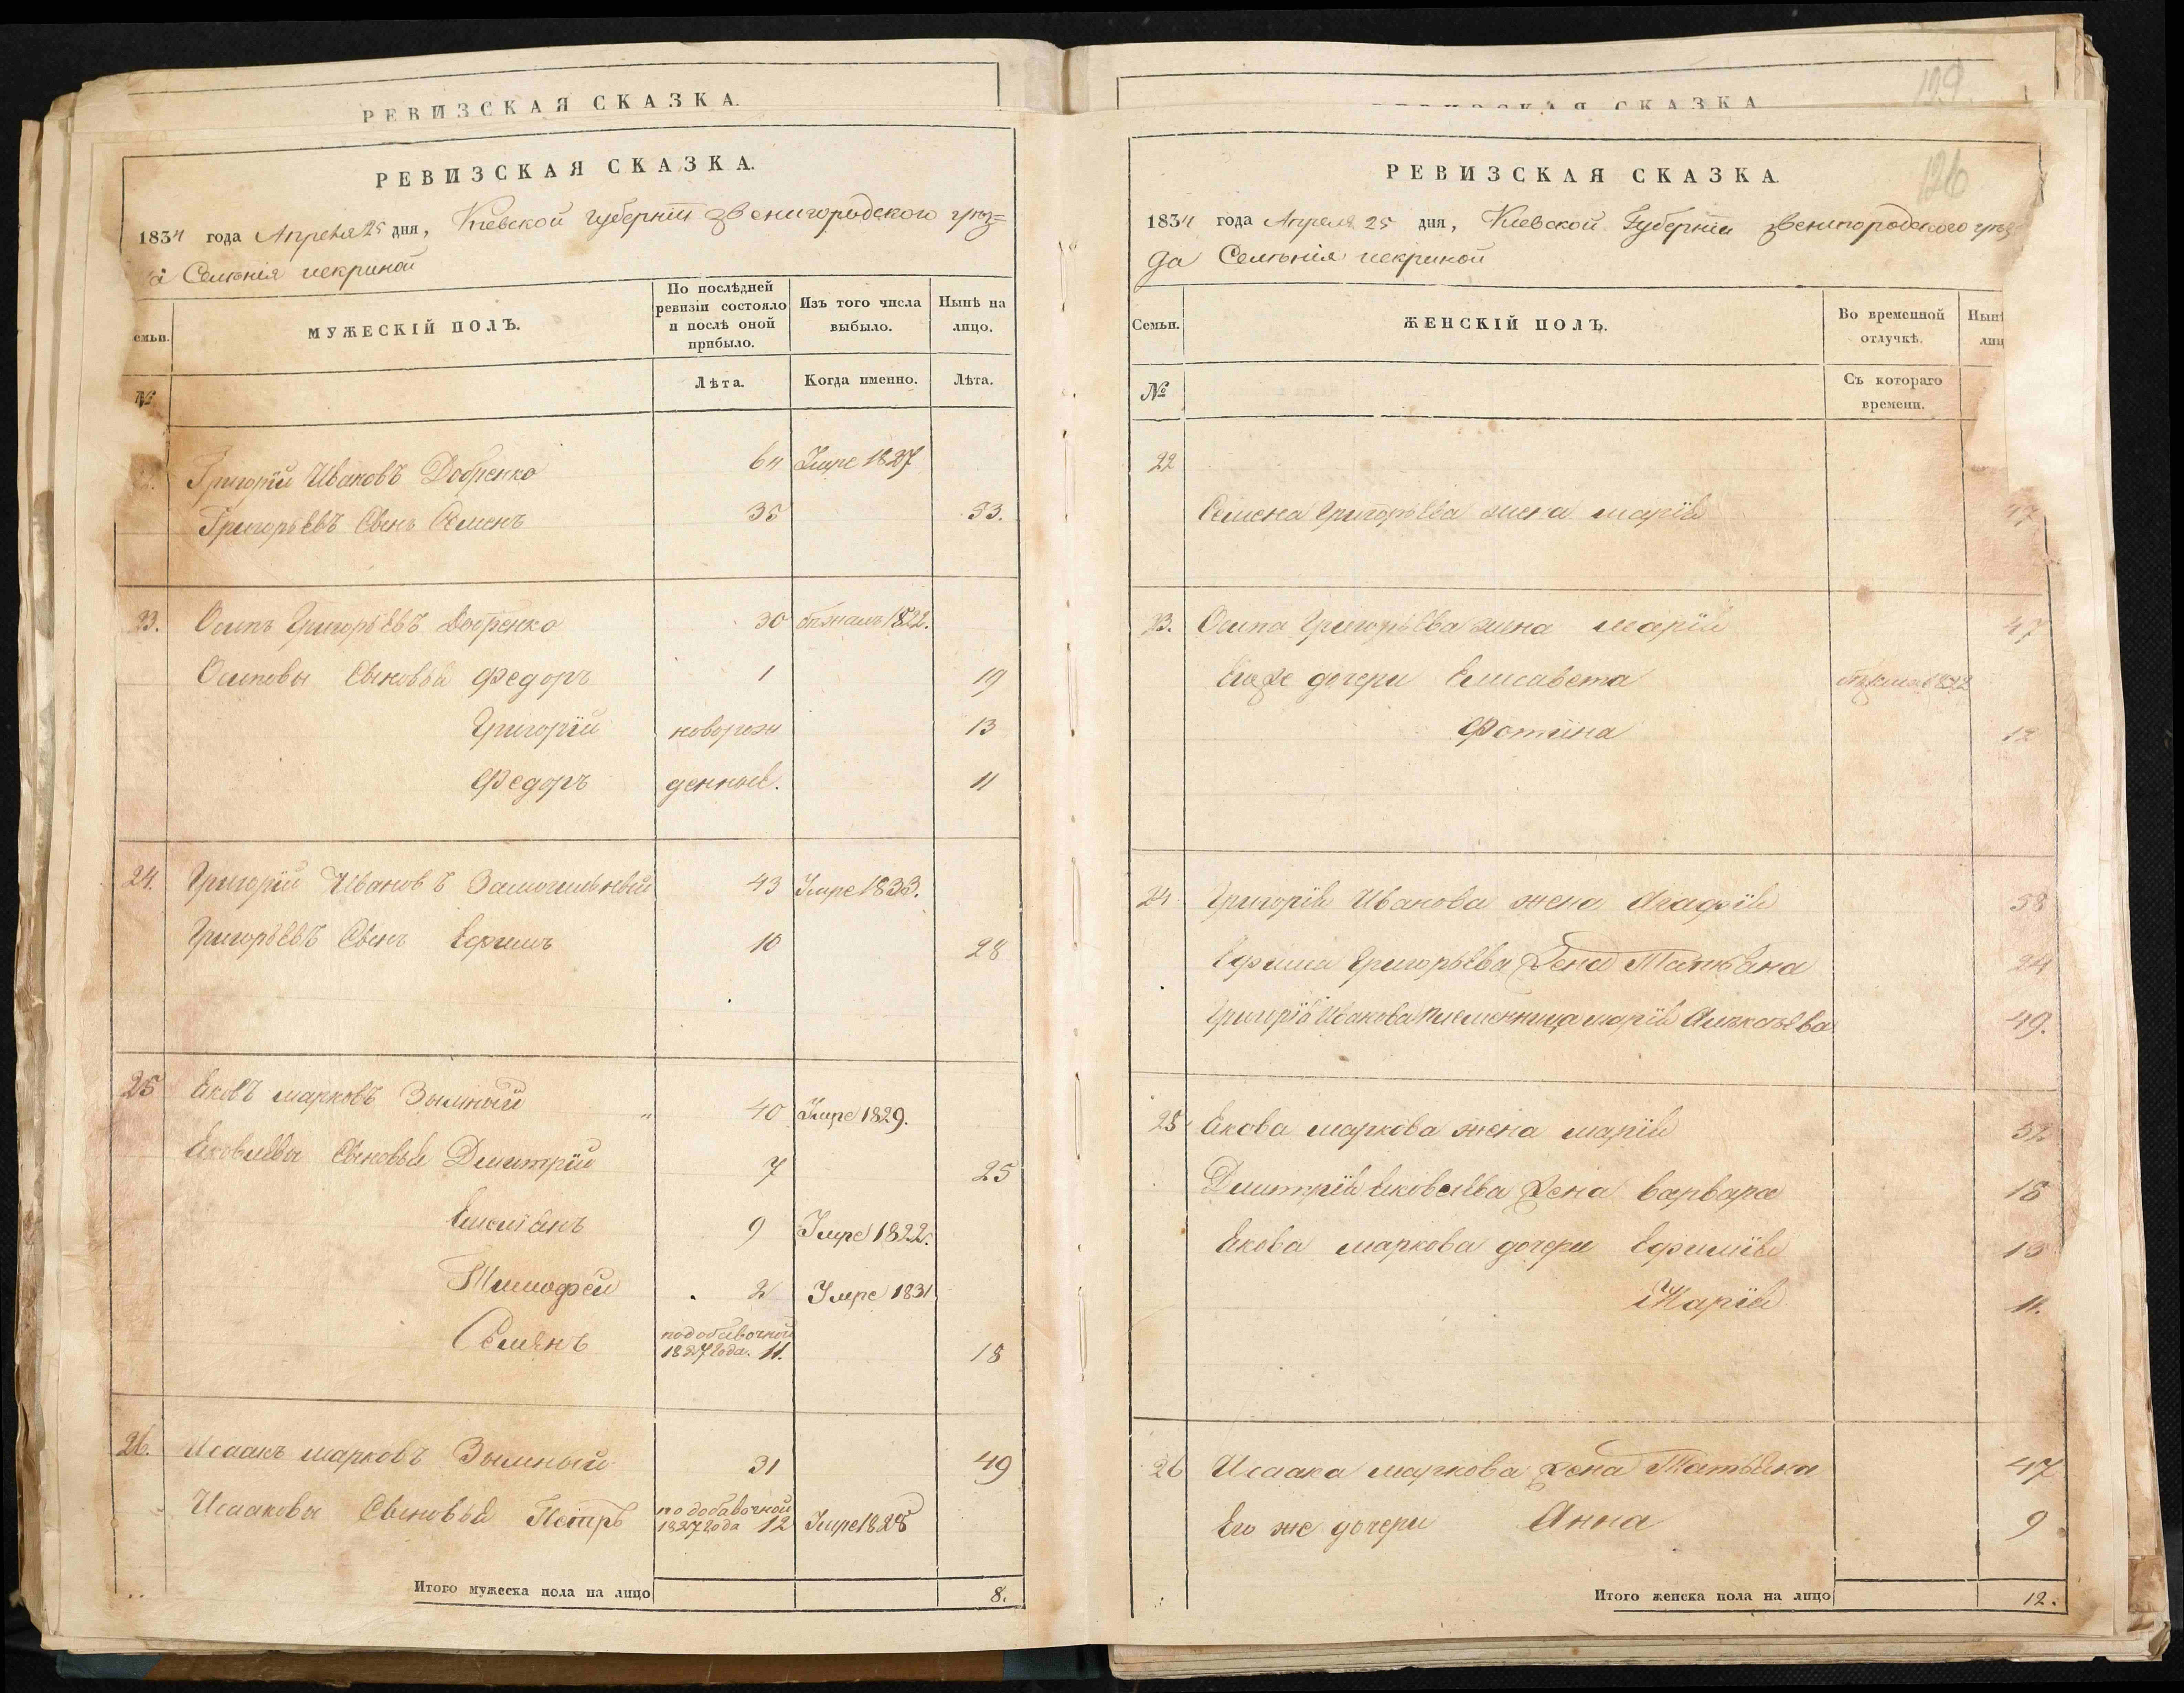 РЕВИЗСКАЯ СКАЗКА.
РЕВИЗСКАЯ СКАЗКА.
1834 года Апреля 25 дня, Киевской губернiи Звенигородского уѣз=
Селѣнiя искриной
емьи.
МУЖЕСКІЙ ПОЛЪ.
По послѣдней ревизіи состояло и послѣ оной прибыло.
Изъ того числа выбыло.
Нынѣ на лицо.
№
Лѣта.
Когда именно.
Лѣта.
Григорiй Ивановъ Добренко 64 Умре 1827
Григорьевъ Сынъ Семенъ 35 53.
23. Осипъ Григорьевъ Добренко 30 бѣжалъ 1822.
Осиповы Сыновья Федоръ 1 19
Григорiй новорож 13
Федоръ денные. 11
24. Григорiй Ивановъ Замогильный 43 Умре 1833.
Григорьевъ Сынъ Ефимъ 10 28
25 Яковъ марковъ Зымный 40 Умре 1829.
Яковлевы Сыновья Дмитрiй 7 25
Емелiанъ 9 Умре 1822.
Тимофей 2 Умре 1831
Семянъ по добавочной
1827 года. 11. 18
26. Исаакъ марковъ Зымный 31 49
Исааковы Сыновья Петръ по добавочной
1827 года 12 Умре 1828
Итого мужеска пола на лицо 8.
РЕВИЗСКАЯ СКАЗКА
129
РЕВИЗСКАЯ СКАЗКА.
126
1834 года Апреля 25 дня, Киевской Губернiи Звенигородского уѣз
да Селѣнiя искриной
Семьи.
ЖЕНСКІЙ ПОЛЪ.
Во временной отлучкѣ.
Нынѣ
лиц
№
Съ котораго времени.
22
Семена Григорьева жена марiя 47
23. Осипа Григорьева жена марiя 47
Его же дочери Елисавета
Фотiина 12
24 Григорiя Иванова жена Агафiя 58
Ефима Григорьева жена Татьяна 24
Григорiя Иванова племенница марiя Алѣксѣева 49.
25 Якова маркова жена марiя 52
Дмитрiя Яковлева жена варвара 18
Якова маркова дочери Ефимiя 13
Марiя 11.
26 Исаака маркова жена Татьяна 47
Его же дочери Анна 9
Итого женска пола на лицо 12.